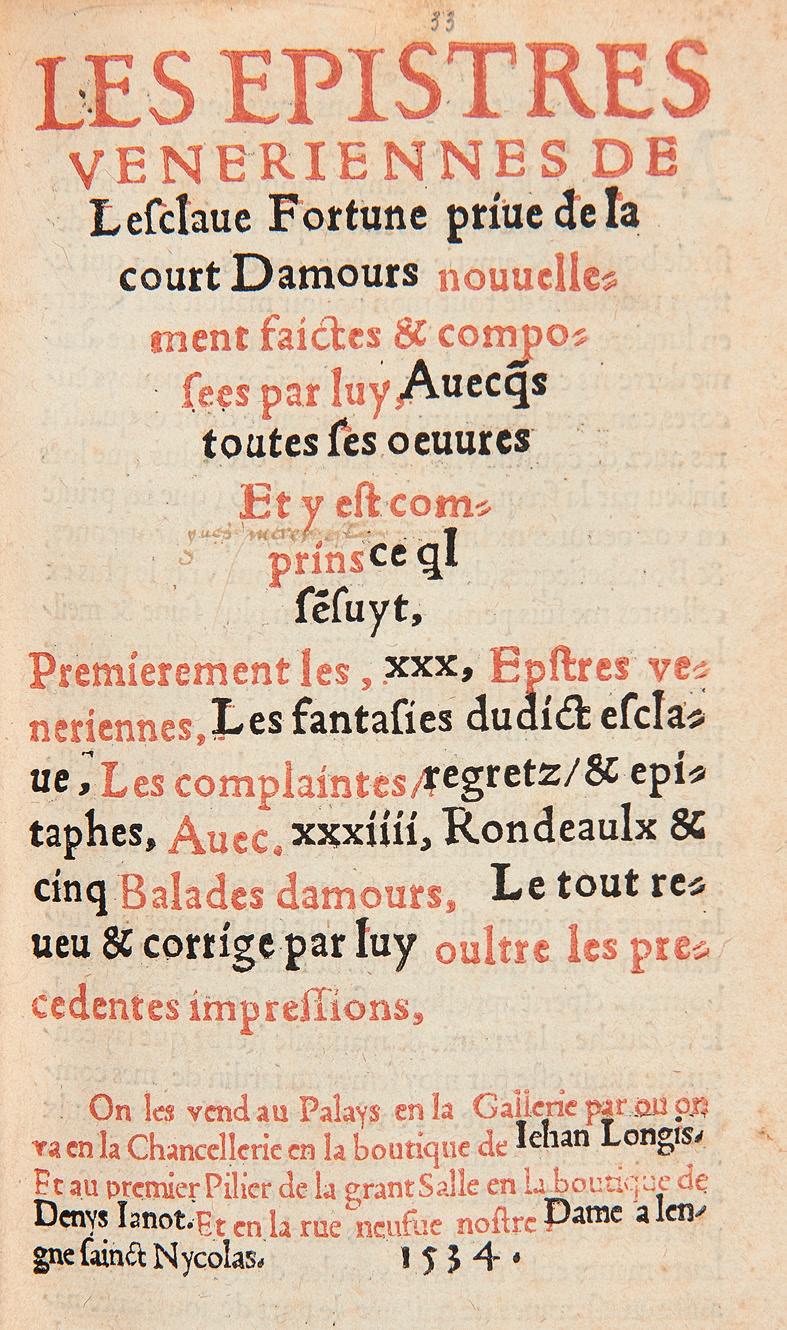 33
LES EPISTRES
VENERIENNES DE
Leſclaue Fortune priue de la
court Damours nouuelle⸗
ment faictes & compo⸗
ſees par luy, Auecq̃s
toutes ſes oeuures
Et y eſt com⸗
prins ce ql
ſẽſuyt,
Premierement les , xxx, Epſtres ve⸗
neriennes, Les fantaſies dudict eſcla⸗
ue, Les complaintes/regretz/& epi⸗
taphes, Auec. xxxiiii, Rondeaulx &
cinq Balades damours, Le tout re⸗
ueu & corrige par luy oultre les pre⸗
cedentes impreſſions,
On les vend au Palays en la Gallerie par ou on
va en la Chancellerie en la boutique de Iehan Longis.
Et au premier Pilier de la grant Salle en la boutique de
Denys Ianot. Et en la rue neufue noſtre Dame a len⸗
gne ſainct Nycolas. 1534.